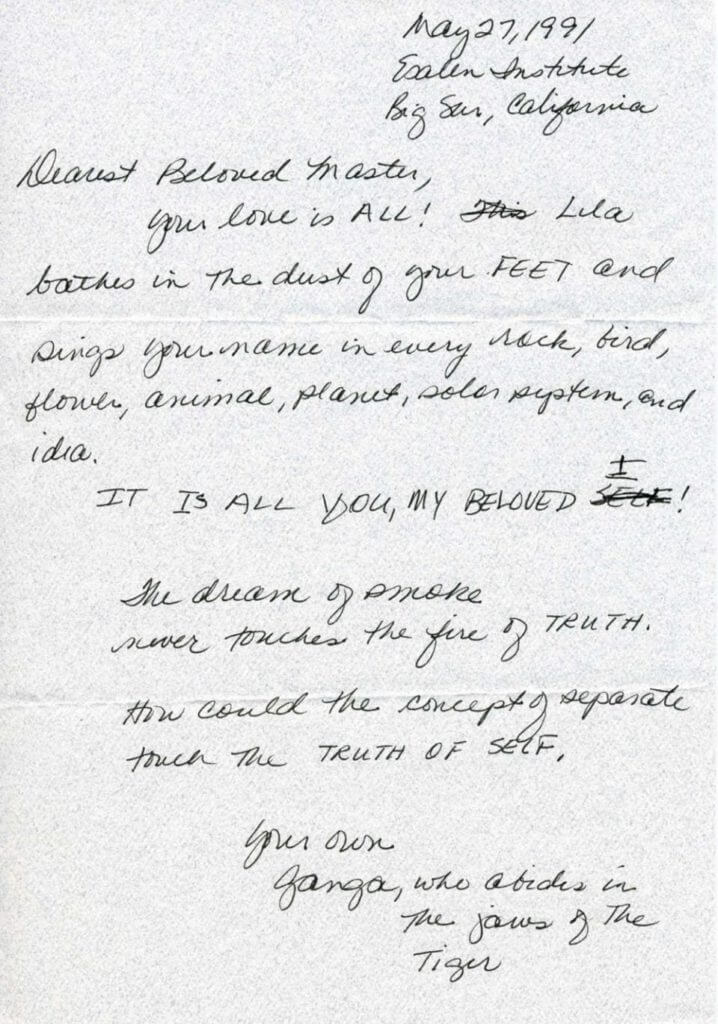 May 27, 1991
Esalen Institute
Big Sur, California
Dearest Beloved Master,
Your love is ALL! This Lila
bathes in the dust of your FEET and
sings your name in every rock, bird,
flower, animal, planet, solar system, and
idea.
I
IT IS ALL YOU, MY BELOVED SELF!
The dream of smoke
never touches the fire of TRUTH.
How could the concept of separate
touch the TRUTH OF SELF.
Your own
Ganga, who abides in
the jaws of the
Tiger